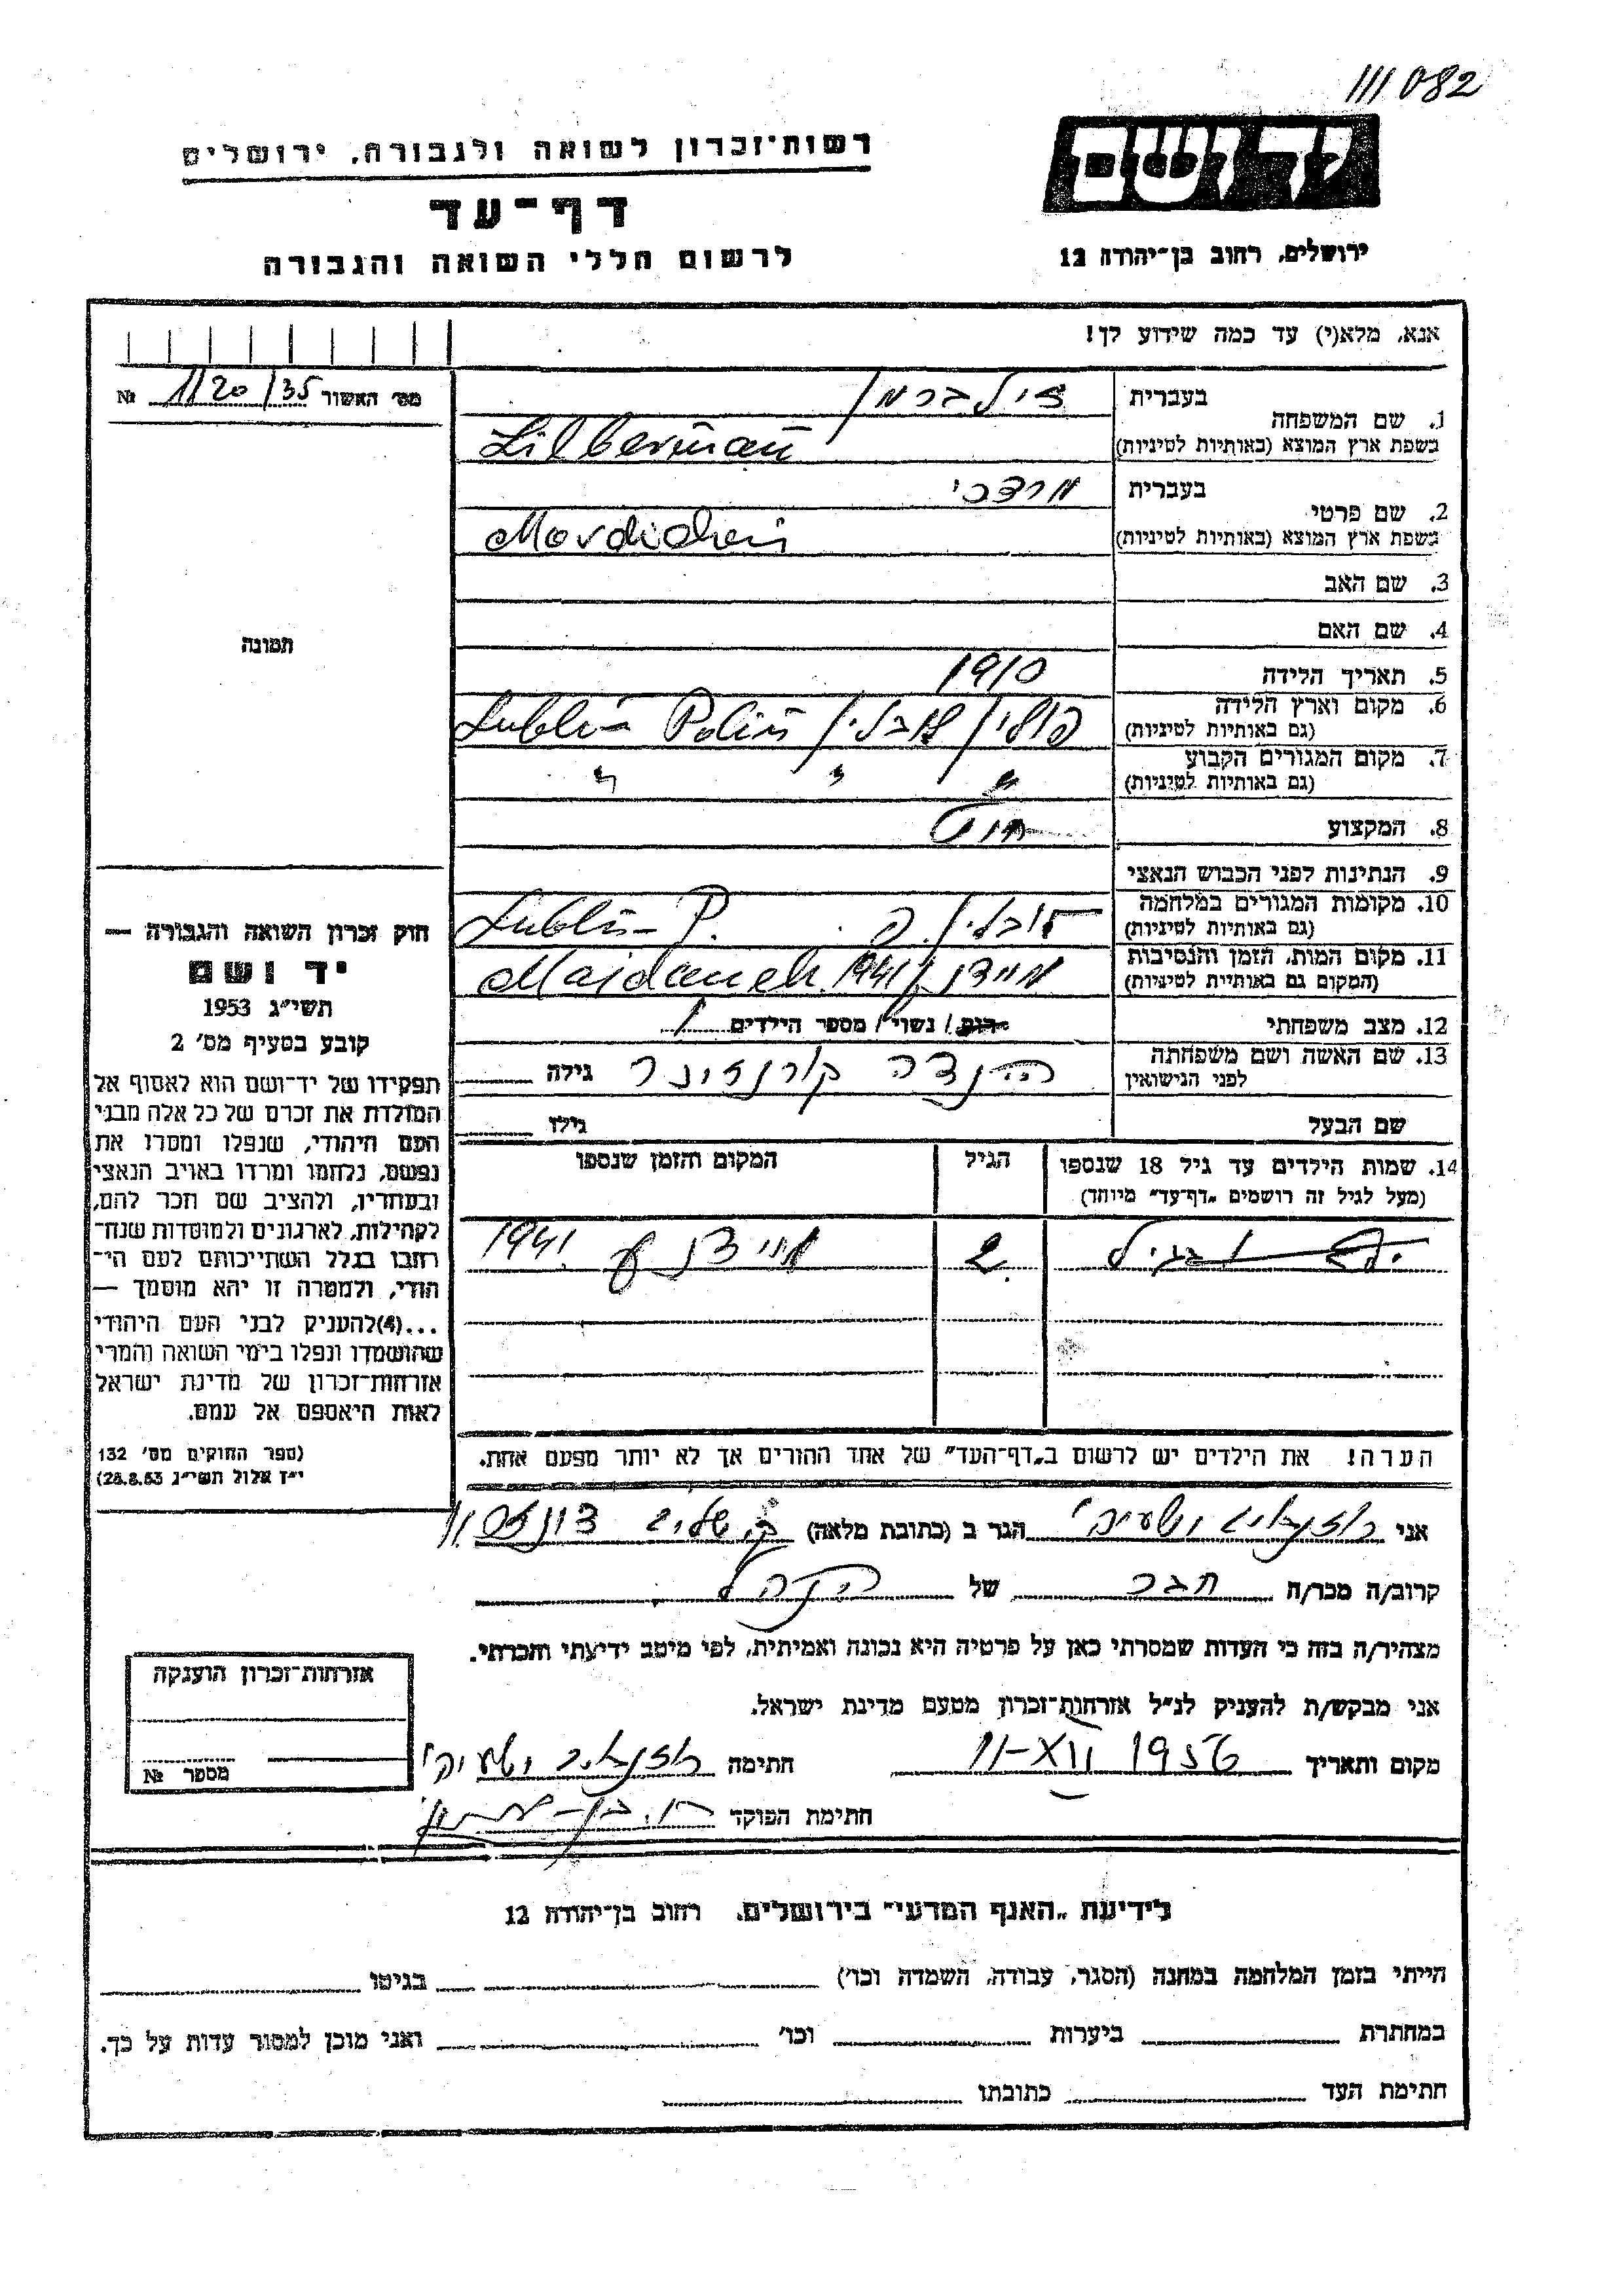 111082
יד ושם
רשות־זכרון לשואה ולגבורה. ירושלים
דף־עד
לרשום חללי השואה והגבורה
ירושלים, רחוב בן־יהודה 12
אנא, מלא(י) עד כמה שידוע לך!
מס׳ האשור 1/20/35 №
1. שם המשפחה
בעברית זילברמן
בשפת ארץ המוצא (באותיות לטיניות) Lilberman
2. שם פרטי
בעברית מרדכי
בשפת ארץ המוצא (באותיות לטיניות) Mordichei
3. שם האב
4. שם האם
תמונה
5. תאריך הלידה 1910
6. מקום וארץ הלידה פולין לובלין Lublin Polin
(גם באותיות לטיניות)
7. מקום המגורים הקבוע " " "
(גם באותיות לטיניות)
8. המקצוע
9. הנתינות לפני הכבוש הנאצי
10. מקומות המגורים במלחמה לובלין. פ. Lublin - P.
(גם באותיות לטיניות)
11. מקום המות, הזמן והנסיבות 1941 Majdanek
(המקום גם באותיית לטיניות)
12. מצב משפחתי רווק / נשוי / מספר הילדים 1
13. שם האשה ושם משפחתה הינדה גילה
לפני הנישואין
שם הבעל גילו
14. שמות הילדים עד גיל 18 שנספו הגיל המקום והזמן שנספו
(מעל לגיל זה רושמים „דף־עד״ מיוחד)
2 1941
הערה! את הילדים יש לרשום ב„דף־העד״ של אחד ההורים אך לא יותר מפעם אחת.
חוק זכרון השואה והגבורה —
יד ושם
תשי״ג 1953
קובע בסעיף מס׳ 2
תפקידו של יד־ושם הוא לאסוף אל
המולדת את זכרם של כל אלה מבני
העם היהודי, שנפלו ומסרו את
נפשם, נלחמו ומרדו באויב הנאצי
ובעוזריו, ולהציב שם וזכר להם,
לקהילות, לארגונים ולמוסדות שנח־
רחבו בגלל השתייכותם לעם הי־
הודי, ולמטרה זו יהא מוסמך —
...(4)להעניק לבני העם היהודי
שהושמדו ונפלו בימי השואה והמרי
אזרחות־זכרון של מדינת ישראל
לאות היאספם אל עמם.
(ספר החוקים מס׳ 132
י״ז אלול תשי״ג 28.8.53)
אני הגר ב (כתובת מלאה)
קרוב/ה מכר/ה חבר של
מצהיר/ה בזה כי העדות שמסרתי כאן על פרטיה היא נכונה ואמיתית, לפי מיטב ידיעתי והכרתי.
אני מבקש/ת להעניק לנ״ל אזרחות־זכרון מטעם מדינת ישראל.
מקום ותאריך 11-XII 1956 חתימה
חתימת הפוקד
אזרחות־זכרון הוענקה
מספר №
לידיעת „האגף המדעי״ בירושלים. רחוב בן־יהודה 12
הייתי בזמן המלחמה במחנה (הסגר, עבודה, השמדה וכו׳) בגיטו
במחתרת ביערות וכו׳ ואני מוכן למסור עדות על כך.
חתימת העד כתובתו